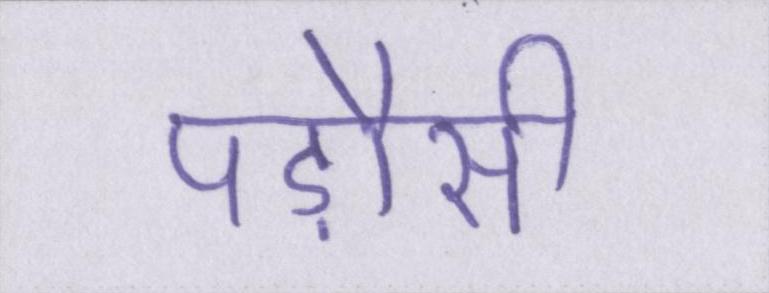 पड़ौसी